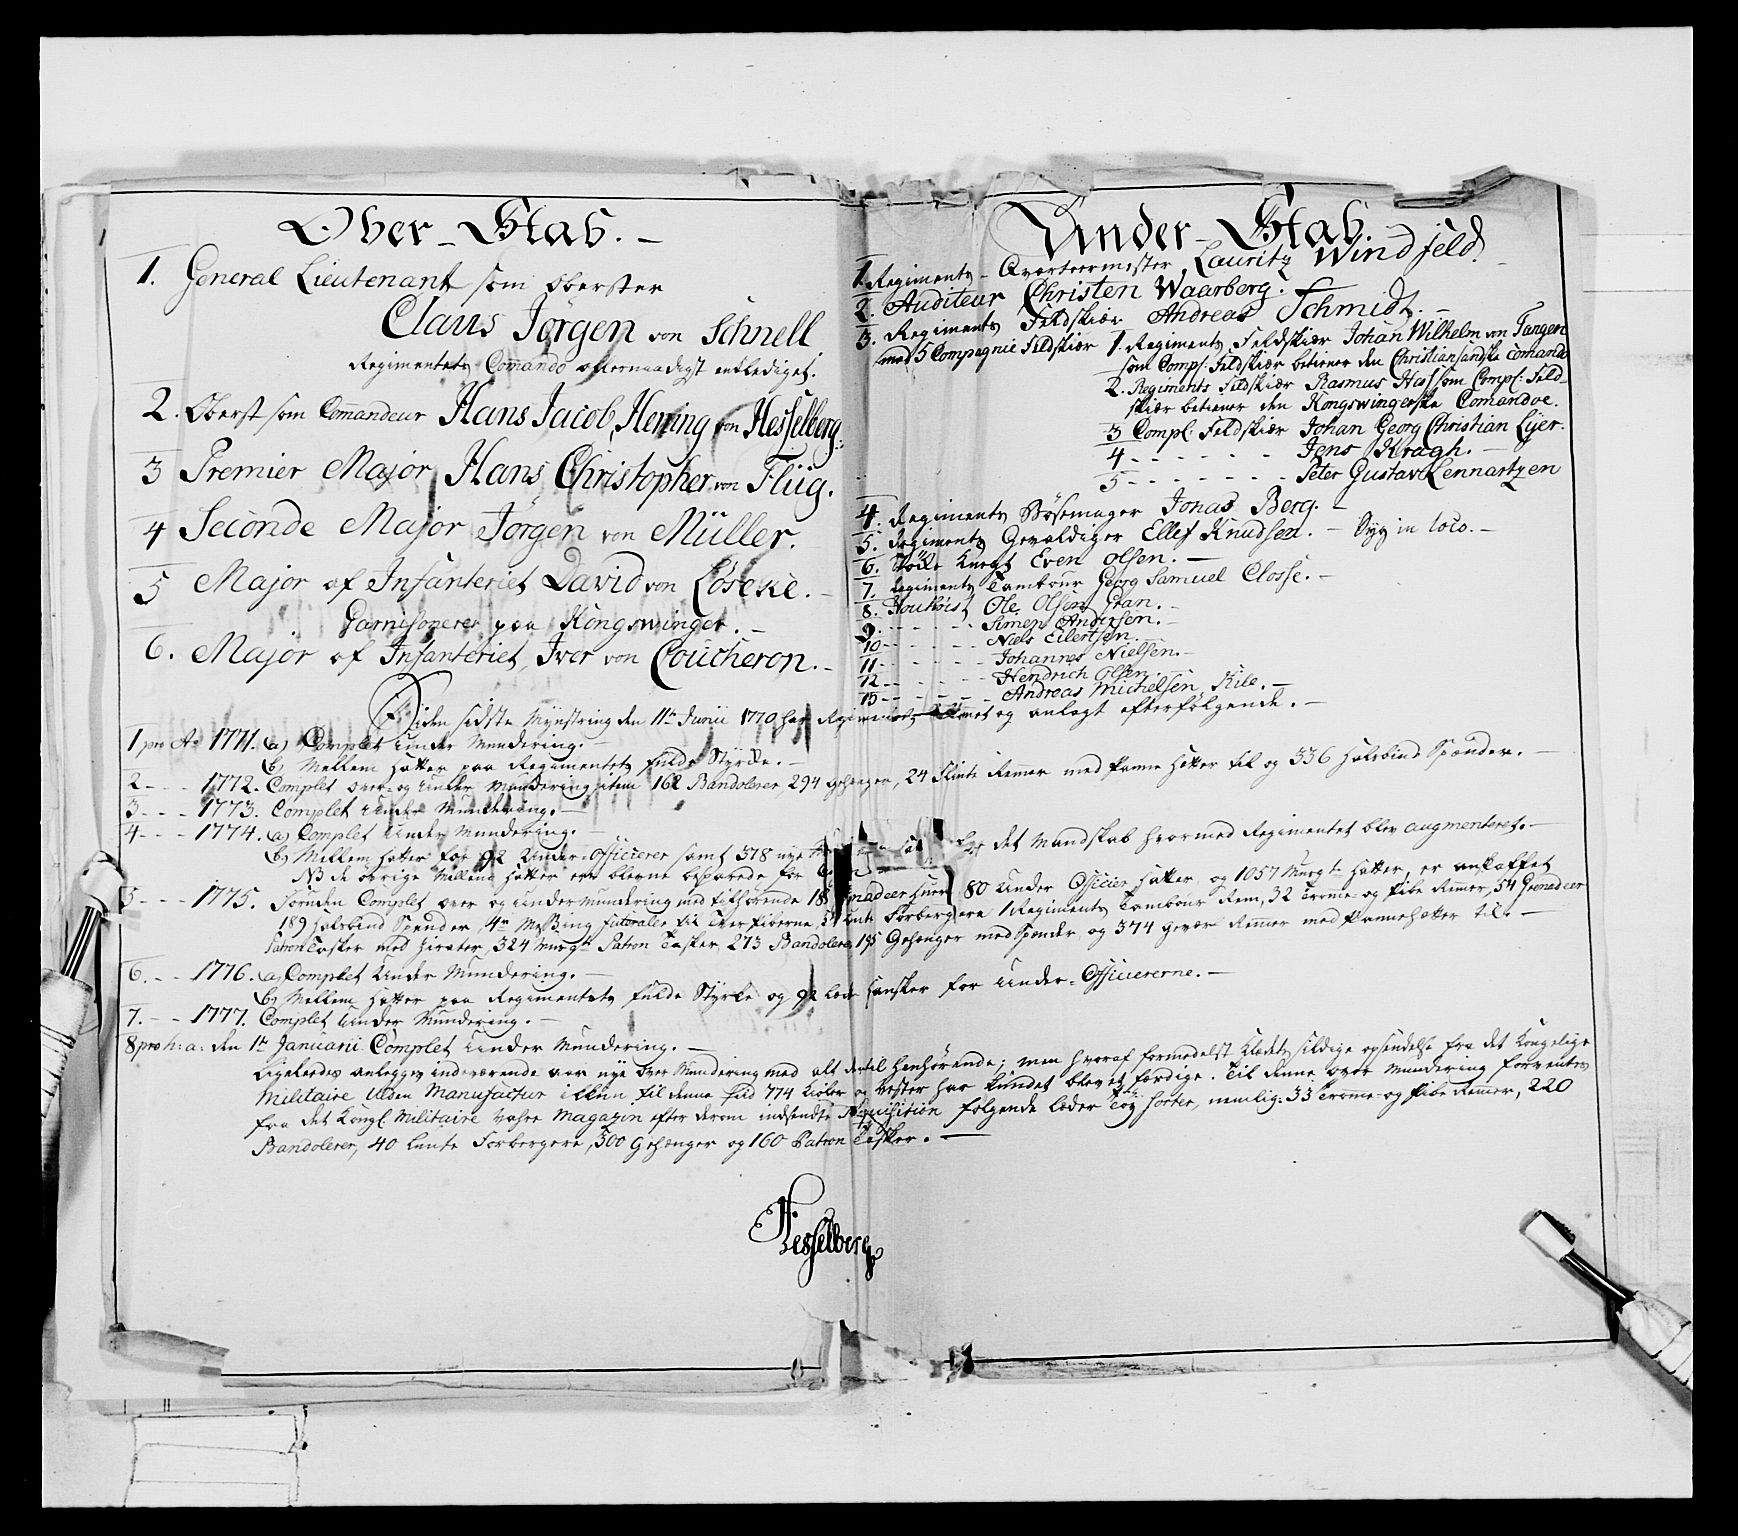 Over-Stab.
1. General Lieutenant som Oberster
Claus Jörgen von Schnell
Regimentets Comando allernaadigst entlediget.
2. Oberst som Commandeur Hans Jacob Hening von Hesselberg.
3 Premier Major Hans Christopher von Flüg.
4 Seconde Major Jörgen von Müller.
5 Major af Infanteriet David von Löseke.
Garnisonerer paa Kongswinger.
6. Major af Infanteriet, Iver von Coucheron.
Under-Stab.
1. Regiments-Qvarteermester Lauritz Windfeld.
2. Auditeur Christen Waarberg.
3. Regiments Feldskiær Andreas Schmidt.
med 5 Compagnie Feldskiær 1. Regiments Feldskiær Johan Wilhelm von Tangen
som Comp: Feldskiær betiener den Christiansandske Comando
2. Regiments Feldskiær Rasmus som Comp: Feld-
skiær betiener den Kongswingerske Comandoe.
3 Comp: Feldskiær Johan Georg Christian Lyer.
4 - - - - - - Jens Kragh.
5 - - - - - - Peter Gustav Lennartzen
4. Regiments Bösemager Jonas Berg.
5. Regiments Gevaldiger Ellef Knudsen. - Syg in loco.
6. Knegt Even Olsen.
7. Regiments Tambour Georg Samuel Closse.
8. Houtboist Ole Olsen Gran.
9. - - - - - Simen Andersen.
10 - - - - - Niels Eilertsen.
11 - - - - - Johannes Nielsen.
12 - - - - - Hendrich Olsen.
13 - - - - - Andreas Michelsen Kile.
Siden sidste Mynstring den 11te Junii 1770 har Regimentet og anlagt efterfölgende.
1 pro Ao 1771. a) Complet Under Mundering.
b) Mellem Hatter paa Regimentets fulde Styrke.
2 - - - 1772. Complet Over- og Under Mundering item 162 Bandolerer 294 Gehenger, 24 Flinte Remmer med Panne Hatter til og 336 Halsbind Spænder.
3 - - - 1773. Complet Under Mundering.
4 - - - 1774. a) Complet Under Mundering.
b) Mellem Hatter for 92 Under-Officierer samt 378 nye det Mandskab hvormed Regimentet blev augmenteret.
NB de övrige Mellem Hatter bleve besparede for
5 - - - 1775. Foruden Complet Over og Under Mundering med tilhörende 80 Under Officier Hatter og 1057 Hatter, er anskaffet
189 Halsbind Spender, 4re Messing Futeraler til Tver Piberne, Lunte Forbergere 1 Regiments Tambour Rem, 32 Tromme- og Pibe Remer, 54 Grenadeer
Patron Tasker med Zirater, 324 Patron Tasker, 273 Bandolerer, 195 Gehænger med Spænder, og 374 Gevær Remmer med Pannehatter til.
6. - - 1776. a) Complet Under Mundering.
b) Mellem Hatter paa Regimentets fulde Styrke og 92 Handsker for Under-Officiererne.
7. - - 1777. Complet Under Mundering.
8 pro h: a: den 1te Januarii Complet Under Mundering.
Ligeledes anlegges indeværende aar nye Over Mundering med alt dertil henhörende; men hvoraf formedelst Klædets sildige opsendelse fra det Kongelige
Militaire Ulden Manufactur til denne Tiid 774 Kioler og Vester har kundet blevet færdige. Til denne Over Mundering forventes
fra det Kongl: Militaire Vahre Magazin efter derom indsendte Requisition fölgende Læder Töy Sorter, nemlig: 33 Tromme- og Pibe Remer, 220
Bandolerer, 40 Lunte Forbergere, 300 Gehænger og 160 Patron Tasker.
Hesselberg